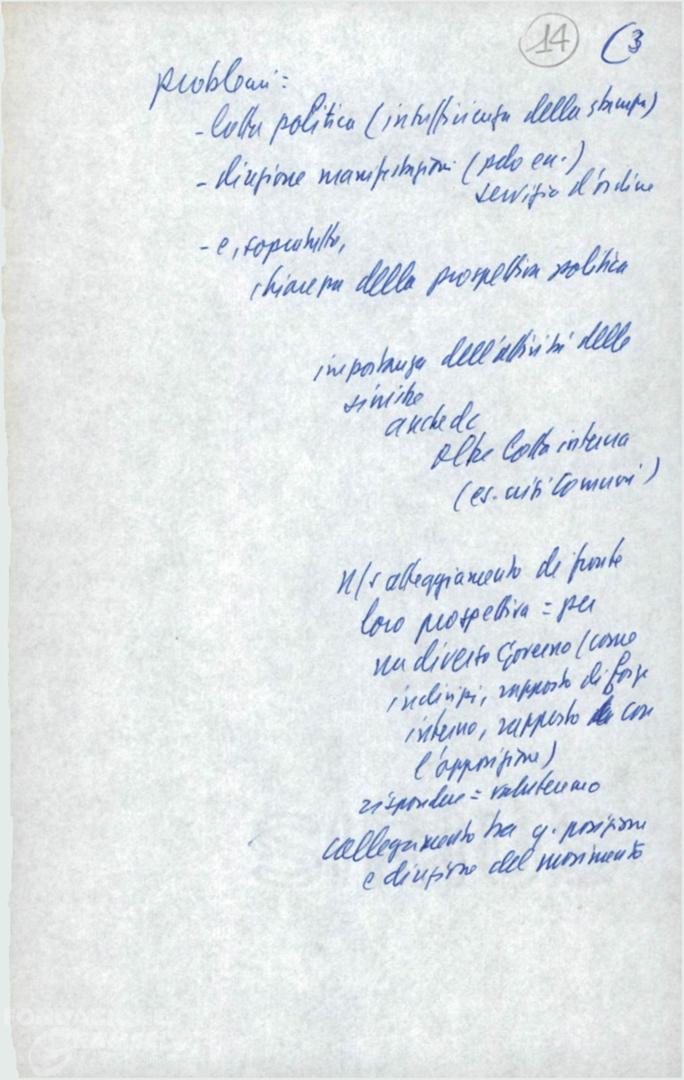 14 (3
problemi:
- lotta politica (insufficienza della stampa)
- direzione manifestazioni (
servizio d'ordine
- e, sopratutto,
chiarezza della prospettiva politica
importanza dell'attività delle
sinistre
anche di
oltre lotta interna
(es. Comuni)
n/s atteggiamento di fronte
loro prospettiva = per
un diverso Governo (come
indirizzi, rapporto di forze
interno, rapporto con
l'opposizione)
rispondere = valuteremo
collegamento tra q. posizione
e direzione del movimento
FONDAZIONE
GRAMSCI